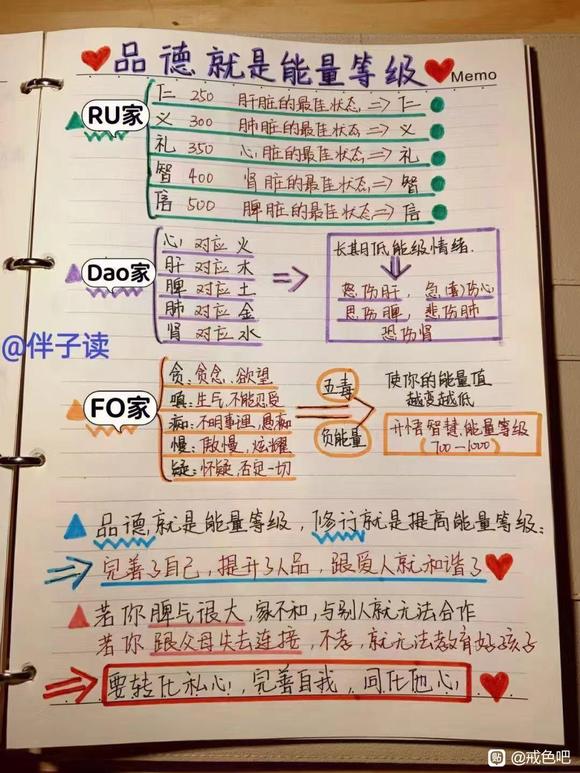 品德就是能量等级
Memo
RU家
仁 250 肝脏的最佳状态 => 仁
义 300 肺脏的最佳状态 => 义
礼 350 心脏的最佳状态 => 礼
智 400 肾脏的最佳状态 => 智
信 500 脾脏的最佳状态 => 信
Dao家
心 对应 火
肝 对应 木
脾 对应 土
肺 对应 金
肾 对应 水
长期低能级情绪.
怒伤肝, 急(喜)伤心
思伤脾, 悲伤肺
恐伤肾
@伴子读
FO家
贪: 贪念, 欲望
嗔: 生气, 不能忍受
痴: 不明事理, 愚痴
慢: 傲慢, 炫耀
疑: 怀疑, 否定一切
五毒
负能量
使你的能量值
越变越低
开悟智慧, 能量等级
(700-1000)
品德就是能量等级, 修行就是提高能量等级:
完善了自己, 提升了人品, 跟爱人就和谐了
若你脾气很大, 家不和, 与别人就无法合作
若你跟父母失去连接, 不孝, 就无法教育好孩子
要转化私心, 完善自我, 同化他心
贴 @戒色吧